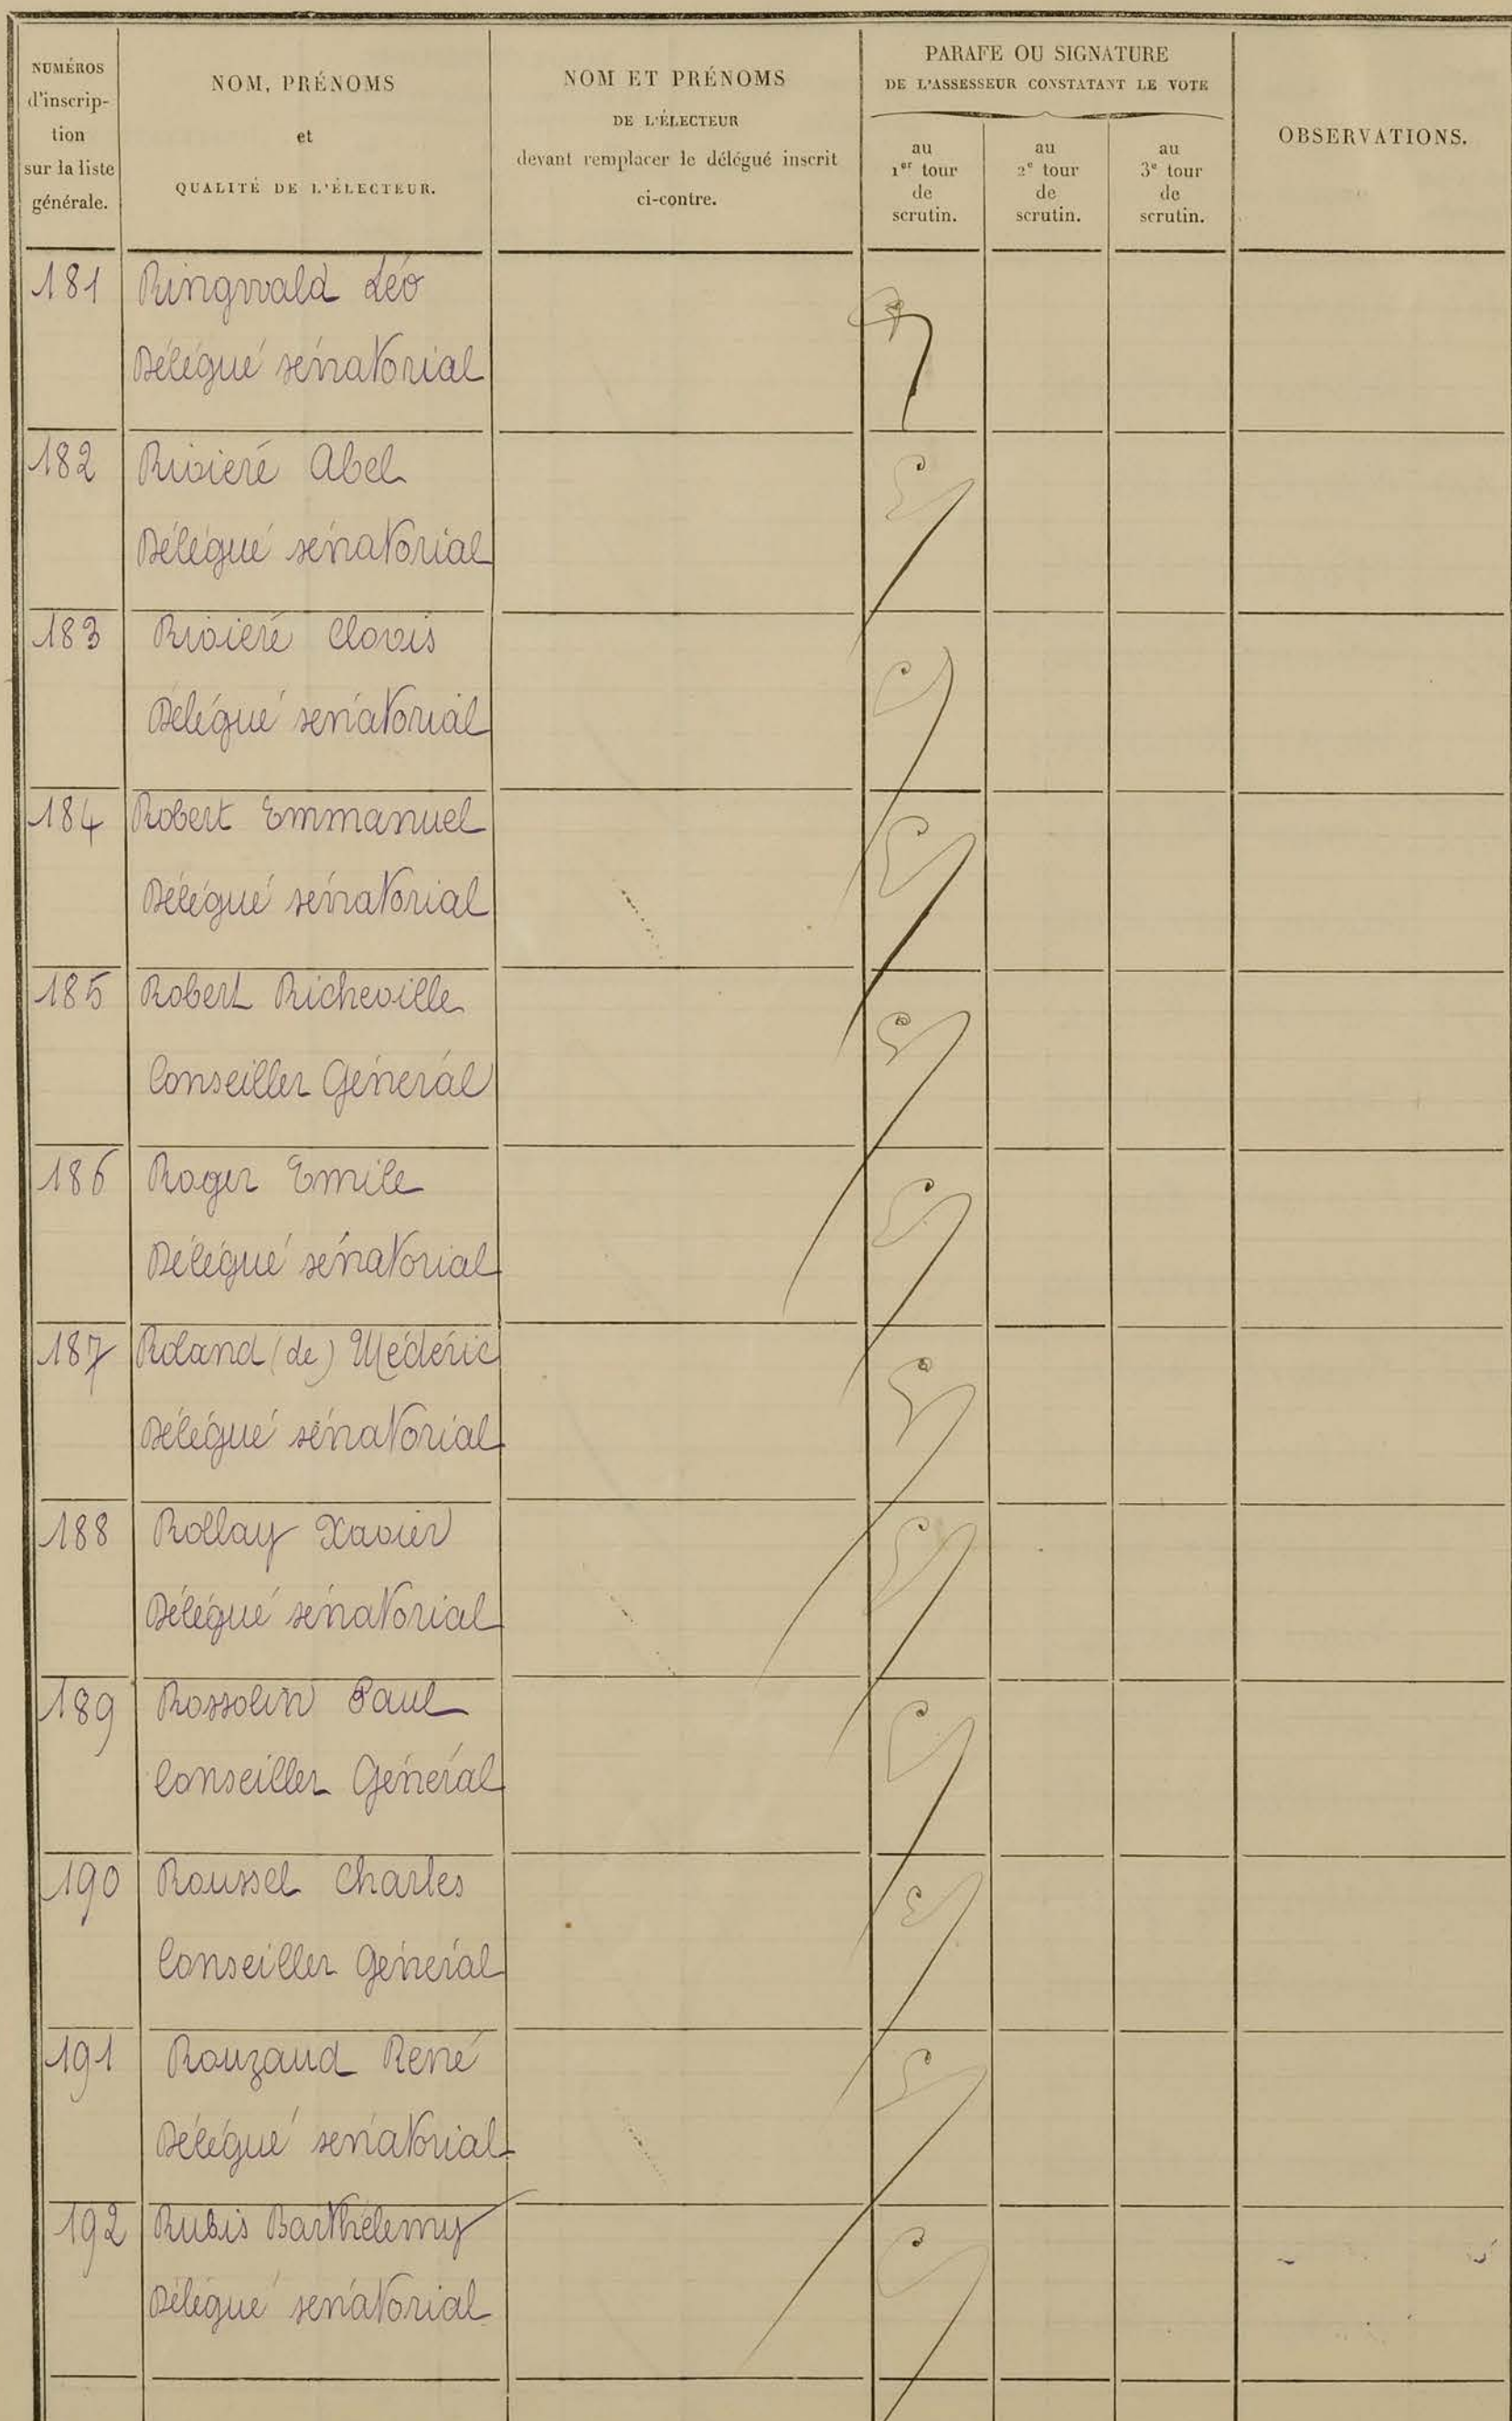 NUMÉROS
d'inscrip-
tion
sur la liste
générale.
NOM, PRÉNOMS
et
QUALITÉ DE L'ÉLECTEUR.
NOM ET PRÉNOMS
DE L'ÉLECTEUR
devant remplacer le délégué inscrit
ci-contre.
PARAFE OU SIGNATURE
DE L'ASSESSEUR CONSTATANT LE VOTE
au
1er tour
de
scrutin.
au
2e tour
de
scrutin.
au
3e tour
de
scrutin.
OBSERVATIONS.
181 Ringwald Léo
Délégué sénatorial
182 Rivière Abel
Délégué sénatorial
183 Rivière Clovis
Délégué sénatorial
184 Robert Emmanuel
Délégué sénatorial
185 Robert Richeville
Conseiller Général
186 Roger Emile
Délégué sénatorial
187 Roland (de) Médéric
Délégué sénatorial
188 Rollay Xavier
Délégué sénatorial
189 Rossolin Paul
Conseiller Général
190 Roussel Charles
Conseiller Général
191 Rouzaud René
Délégué sénatorial
192 Rubis Barthélemy
Délégué sénatorial